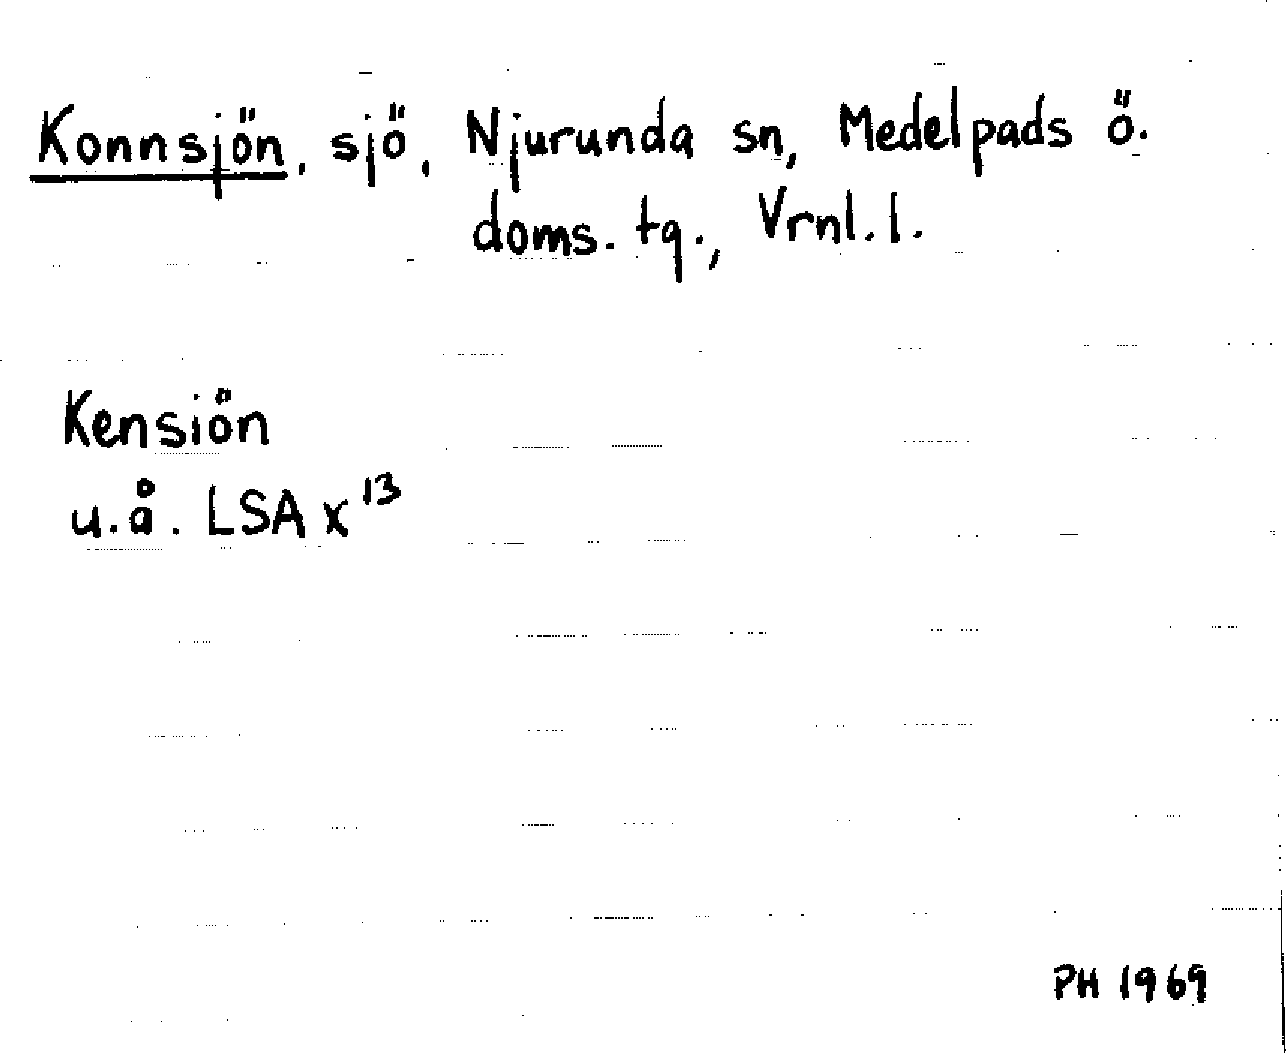 Konnsjön, sjö, Njurunda sn, Medelpads ö.
doms. tg., Vrnl. l.
Kensiön
u.å. LSA x¹³
PH 1969